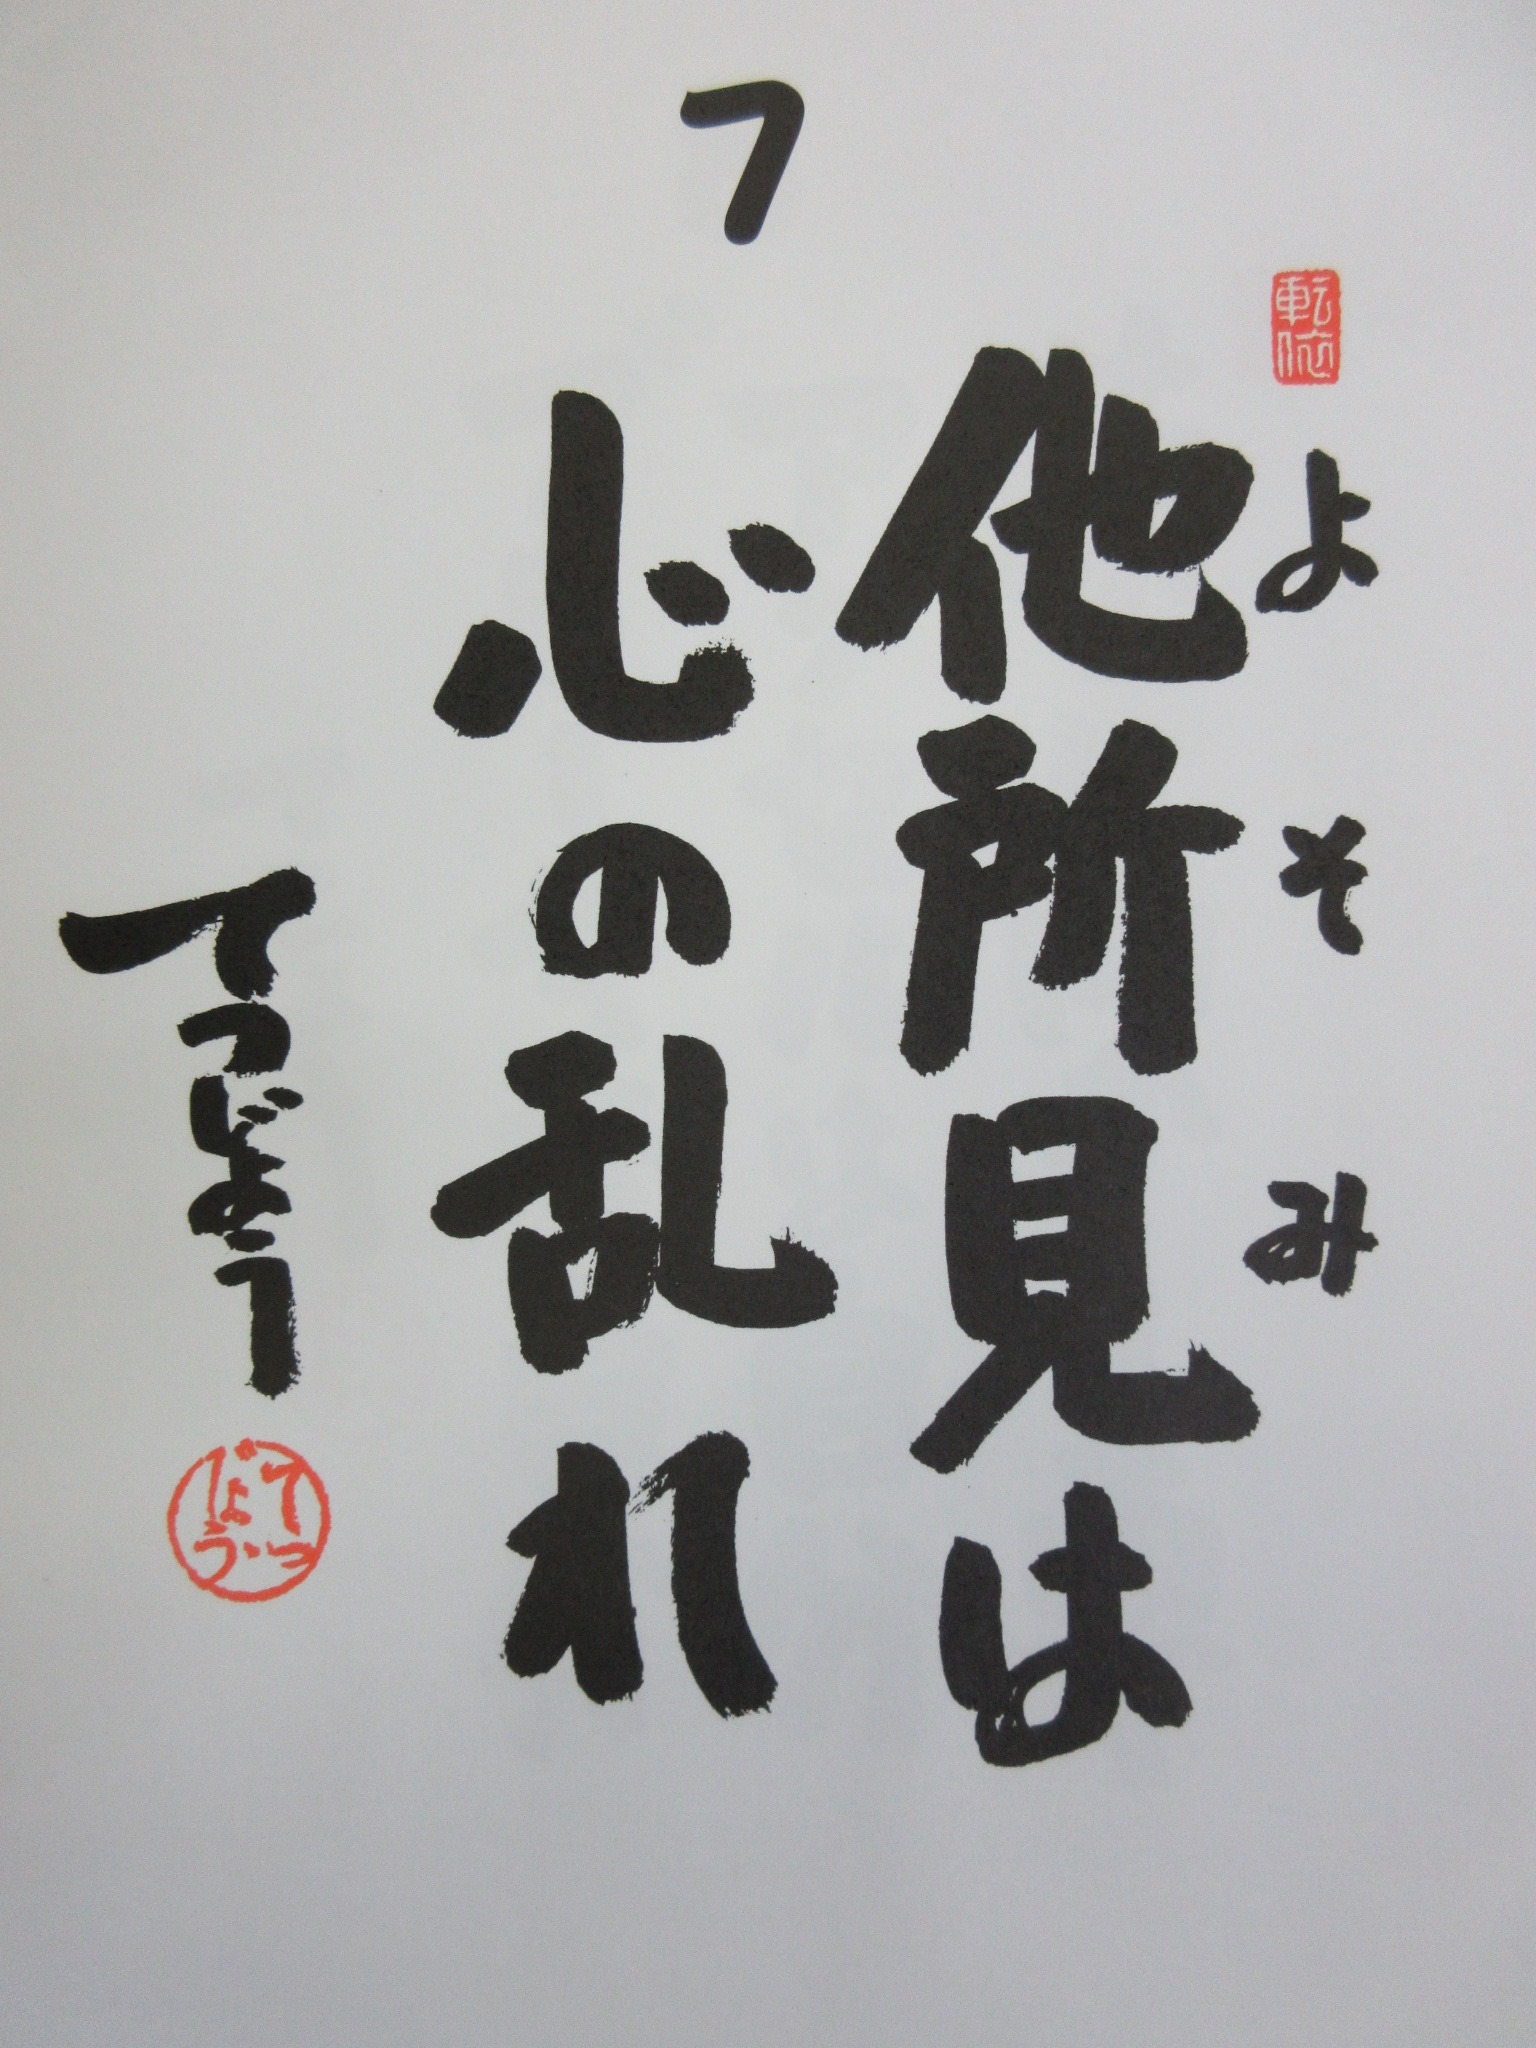 7
転依
よそみ
他所見は
心の乱れ
てつじょう
てつじょう